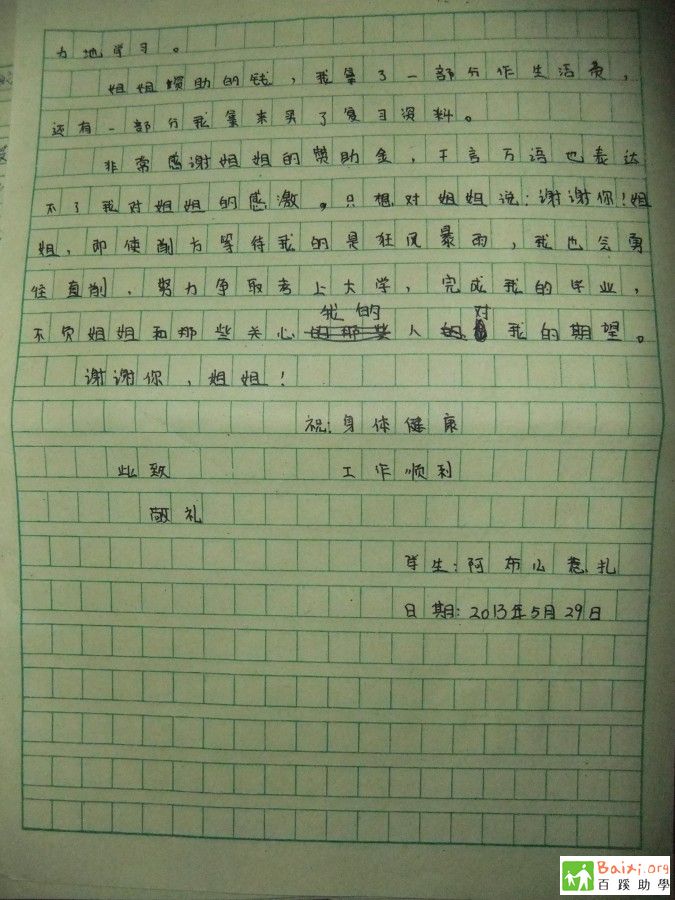 力地学习。
姐姐赞助的钱，我拿了一部分作生活费，
还有一部分我拿来买了复习资料。
非常感谢姐姐的赞助金，千言万语也表达
不了我对姐姐的感激。只想对姐姐说：谢谢你！姐
姐，即使前方等待我的是狂风暴雨，我也会勇
往直前，努力争取考上大学，完成我的毕业，
不负姐姐和那些关心我的人对我的期望。
谢谢你，姐姐！
祝：身体健康
此致 工作顺利
敬礼
学生：阿布么惹扎
日期：2013年5月29日
Baixi.org
百蹊助學